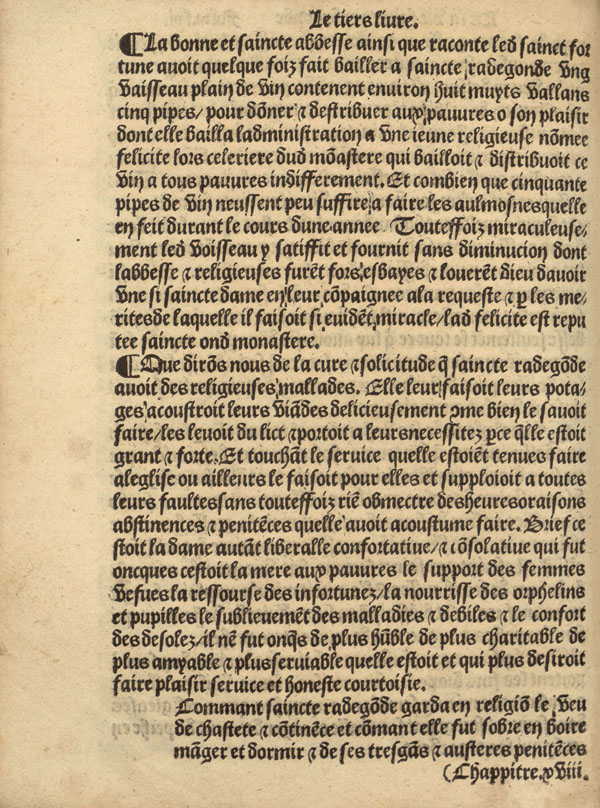 Le tiers liure.
¶La bonne et saincte abbesse ainsi que raconte led sainct for
tune auoit quelque foiz fait bailler a saincte radegonde vng
vaisseau plain de vin contenent enuiron huit muyts vallans
cinq pipes/ pour dōner ⁊ destribuer aux pauures o son plaisir
dont elle bailla ladministration a vne ieune religieuse nōmee
felicite lors celeriere dud mōastere qui bailloit ⁊ distribuoit ce
vin a tous pauures indifferement. Et combien que cinquante
pipes de vin neussent peu suffire a faire les aulmosnesquelle
en feit durant le cours dune annee. Touteffoiz miraculeuse,
ment led voisseau y satiffit et fournit sans diminucion dont
labbesse ⁊ religieuses furēt fors esbayes ⁊ louerēt dieu dauoir
vne si saincte dame en leur cōpaignee ala requeste ⁊ ꝑ les me,
ritesde laquelle il faisoit si euidēt miracle/lad felicite est repu
tee saincte ond monastere.
¶Que dirōs nous de la cure ⁊solicitude q̄ saincte radegōde
auoit des religieuses mallades. Elle leur faisoit leurs pota,
ges acoustroit leurs viādes delicieusement ꝯme bien le sauoit
faire/les leuoit du lict ⁊portoit a leursnecessitez ꝑce q̄lle estoit
grant ⁊ forte. Et touchāt le seruice quelle estoiēt tenues faire
aleglise ou ailleurs le faisoit pour elles et supploioit a toutes
leurs faultessans touteffoiz riē obmectre desheuresoraisons
abstinences ⁊ penitēces quelle auoit acoustume faire. Brief ce
stoit la dame autāt liberalle confortatiue/⁊ cōsolatiue qui fut
oncques cestoit la mere aux pauures le support des femmes
vefues la ressourse des infortunez/la nourrisse des orphelins
et pupilles le subleuemēt des malladies ⁊ debiles ⁊ le confort
des desolez/il nē fut onq̄s de plus hūble de plus charitable de
plus amyable ⁊ plus seruiable quelle estoit et qui plus desiroit
faire plaisir seruice et honeste courtoisie.
Commant saincte radegōde garda en religiō le veu
de chastete ⁊ cōtinēce et cōmant elle fut sobre en boire
māger et dormir ⁊ de ses tresgās ⁊ austeres penitēces
(Chappitre.xviii.